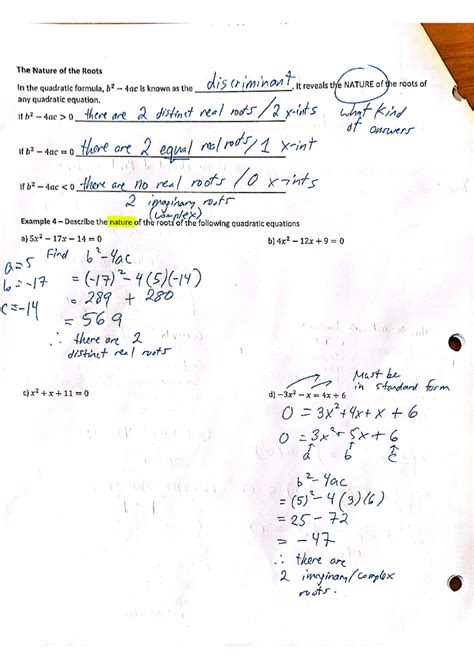 The Nature of the Roots
In the quadratic formula, b² − 4ac is known as the discriminant. It reveals the NATURE of the roots of
any quadratic equation.
If b² − 4ac > 0 there are 2 distinct real roots / 2 x-ints
what kind
of answers
If b² − 4ac = 0 there are 2 equal real roots / 1 x-int
If b² − 4ac < 0 there are no real roots / 0 x-ints
2 imaginary roots
(complex)
Example 4 – Describe the nature of the roots of the following quadratic equations
a) 5x² − 17x − 14 = 0
b) 4x² − 12x + 9 = 0
Find b² − 4ac
a = 5
b = −17
c = −14
= (−17)² − 4(5)(−14)
= 289 + 280
= 569
∴ there are 2
distinct real roots
Must be
in standard form
c) x² + x + 11 = 0
d) −3x² − x = 4x + 6
0 = 3x² + 4x + x + 6
0 = 3x² + 5x + 6
a b c
b² − 4ac
= (5)² − 4(3)(6)
= 25 − 72
= −47
∴ there are
2 imaginary/complex
roots.